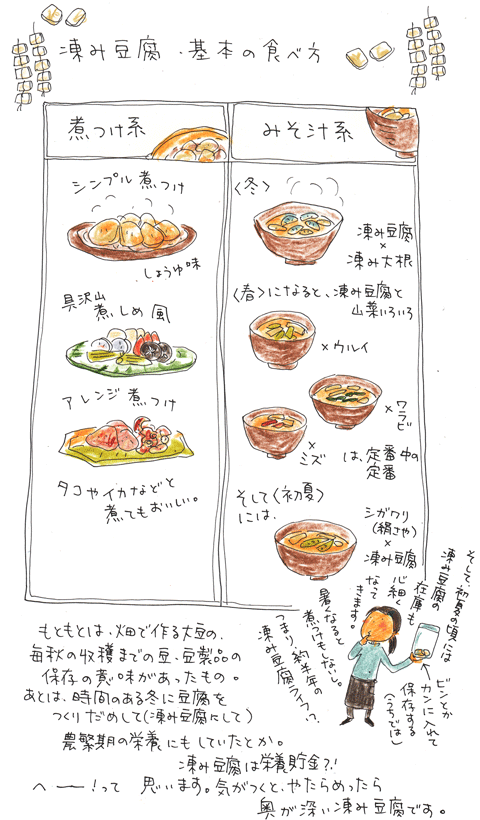 凍み豆腐・基本の食べ方
煮つけ系
シンプル煮つけ
しょうゆ味
具沢山
煮しめ風
アレンジ煮つけ
タコやイカなどと
煮てもおいしい。
みそ汁系
〈冬〉
凍み豆腐
×
凍み大根
〈春〉になると、凍み豆腐と
山菜いろいろ
×ウルイ
×ワラビ
×ミズ
は、定番中の
定番
そして〈初夏〉
には、
シガワリ
(絹さや)
×
凍み豆腐
そして、初夏の頃には
凍み豆腐の
在庫も
心細く
なって
きます。
暑くなると
煮つけもしないし。
つまり、約半年の
凍み豆腐ライフ!?
ビンとか
カンに入れて
保存する
(うちでは)
もともとは、畑で作る大豆の、
毎秋の収穫までの豆、豆製品の
保存の意味があったもの。
あとは、時間のある冬に豆腐を
つくりだめして(凍み豆腐にして)
農繁期の栄養にもしていたとか。
凍み豆腐は栄養貯金?!
へーー!って 思います。気がつくと、やたらめったら
奥が深い凍み豆腐です。